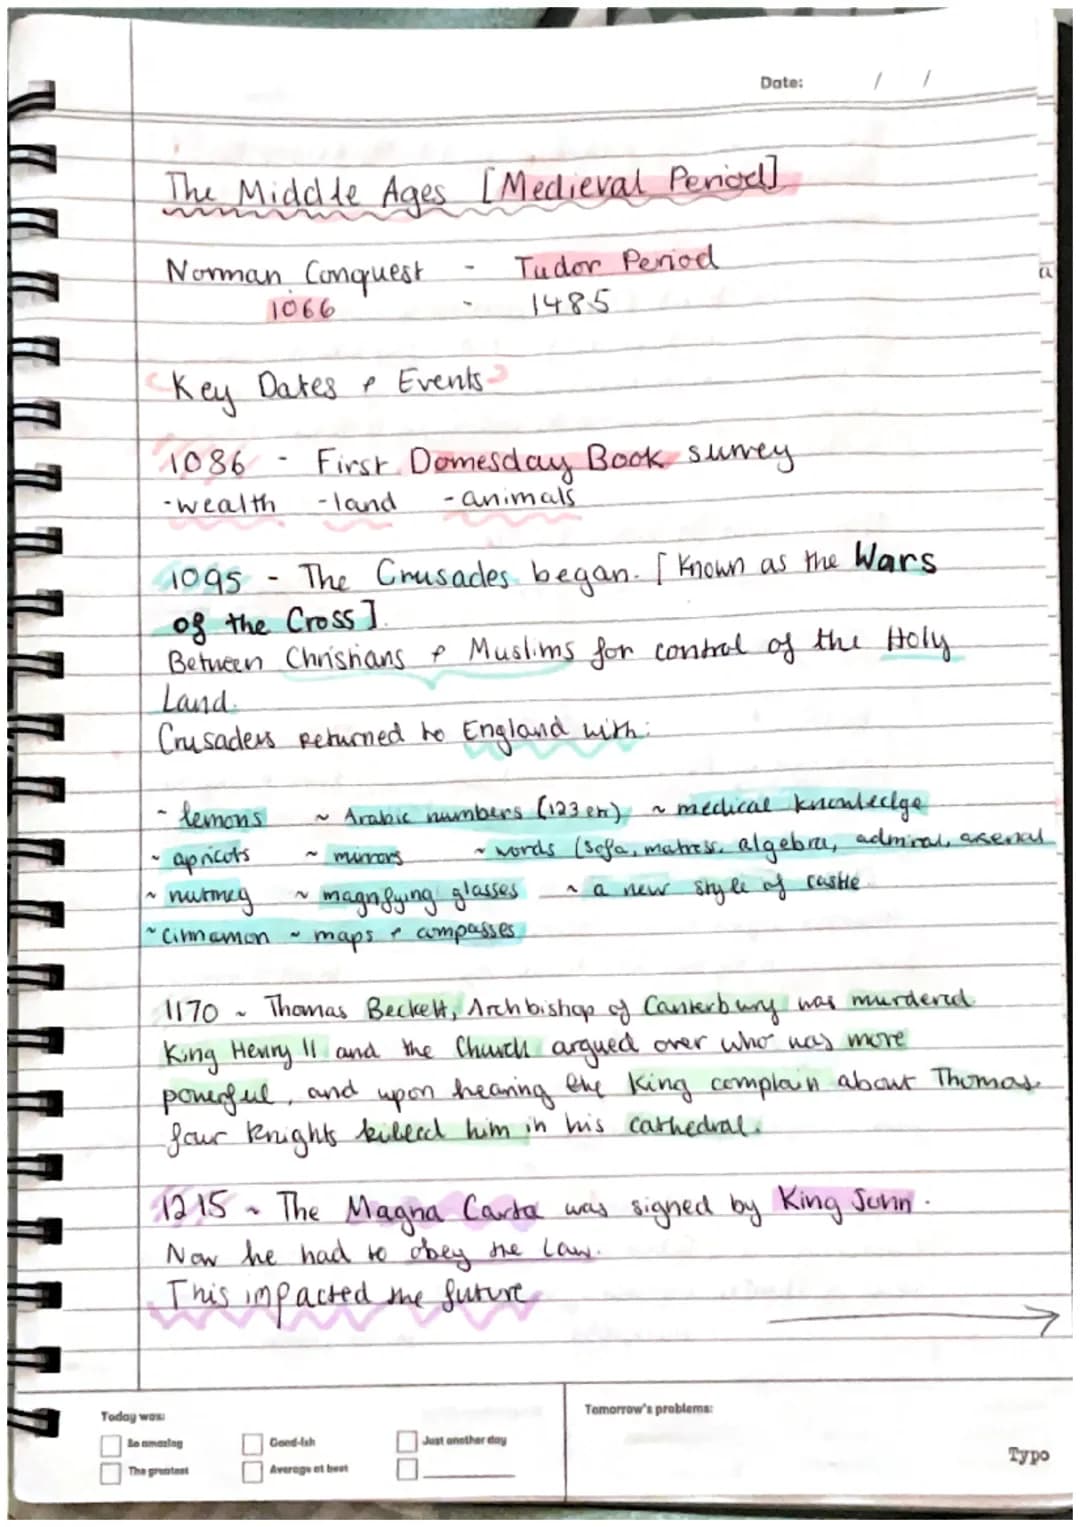 Date: / /
The Middle Ages [Medieval Period]
Norman Conquest - Tudor Period
1066 - 1485
Key Dates & Events
1086 - First Domesday Book survey
-wealth -land -animals
1095 - The Crusades began. [Known as the Wars
of the Cross].
Between Christians & Muslims for control of the Holy
Land.
Crusaders returned to England with:
- lemons ~ Arabic numbers (123 etc) ~ medical knowledge
~ apricots ~ mirrors ~ words (sofa, matress, algebra, admiral, arsenal
~ nutmeg ~ magnifying glasses ~ a new style of castle
~ cinnamon ~ maps & compasses
1170 ~ Thomas Beckett, Archbishop of Canterbury was murdered
King Henry II and the Church argued over who was more
powerful, and upon hearing the King complain about Thomas
four knights killed him in his cathedral.
1215 ~ The Magna Carta was signed by King John.
Now he had to obey the law.
This impacted the future
Today was:
So amazing Good-ish Just another day
The greatest Average at best
Tomorrow's problems:
Typo